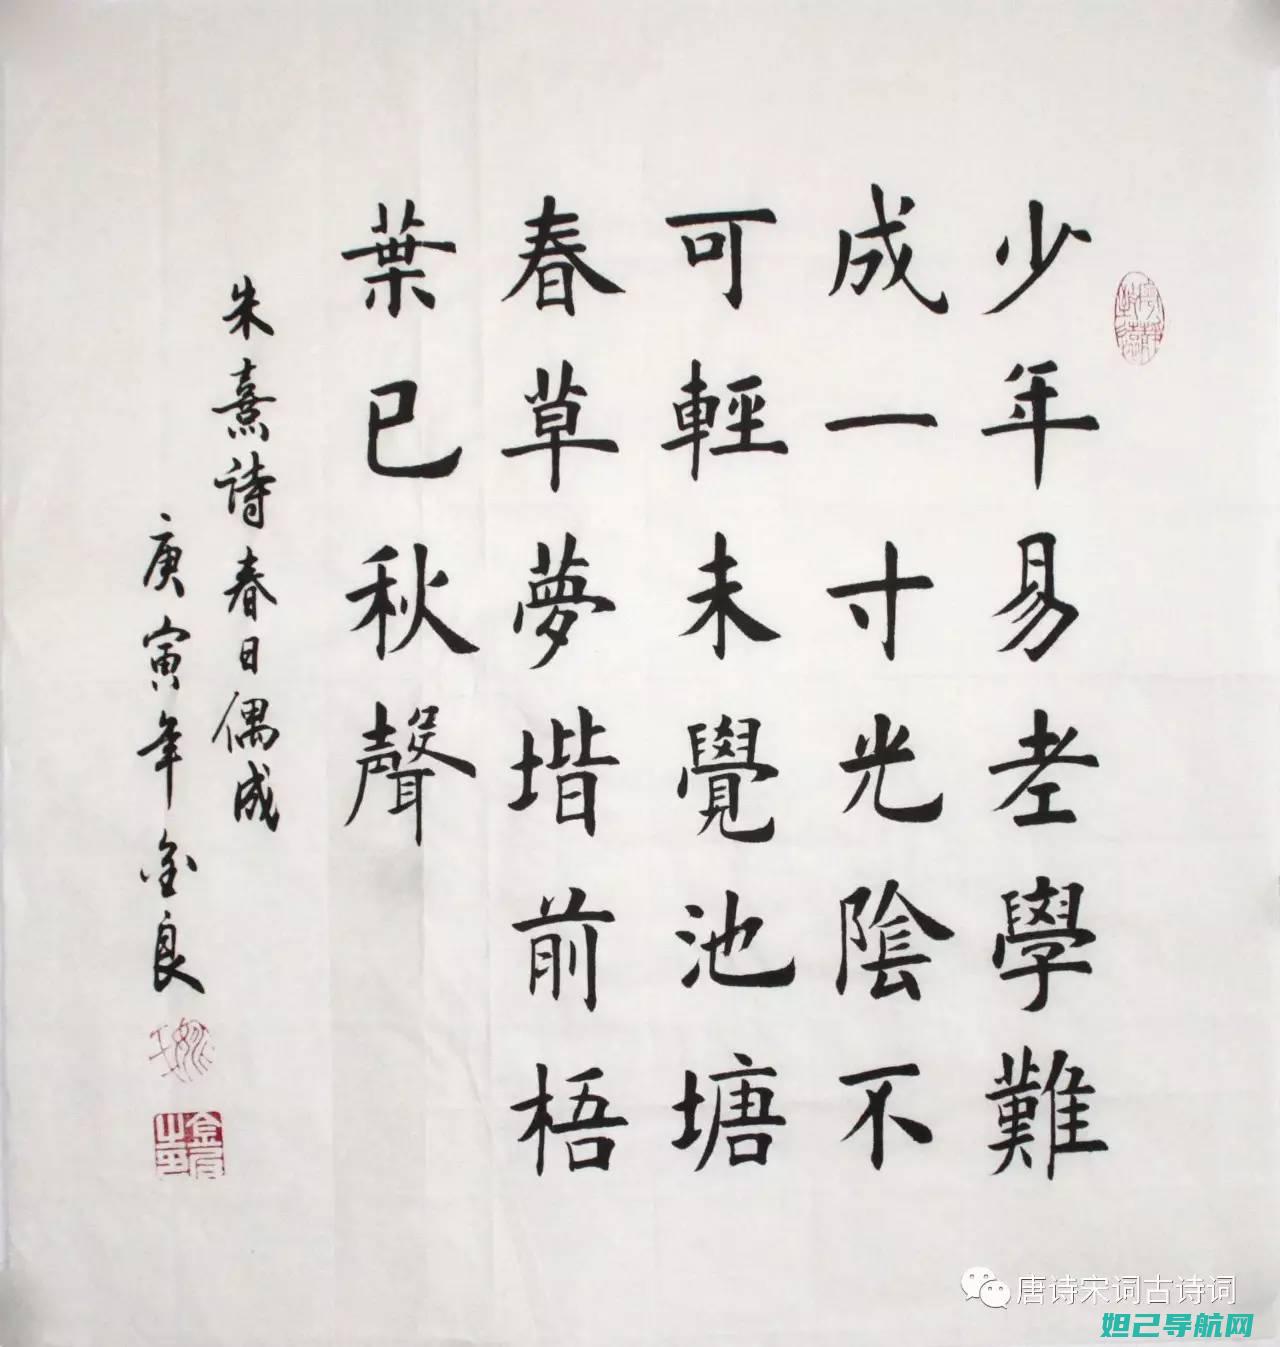 少年易老學難
成一寸光陰不
可輕未覺池塘
春草夢堦前梧
葉已秋聲
朱熹诗春日偶成
庚寅年金良
唐诗宋词古诗词
妲己导航网